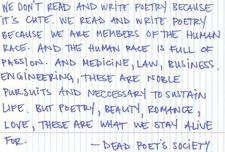 WE DON'T READ AND WRITE POETRY BECAUSE
IT'S CUTE. WE READ AND WRITE POETRY
BECAUSE WE ARE MEMBERS OF THE HUMAN
RACE. AND THE HUMAN RACE IS FULL OF
PASSION. AND MEDICINE, LAW, BUSINESS,
ENGINEERING, THESE ARE NOBLE
PURSUITS AND NECCESSARY TO SUSTAIN
LIFE. BUT POETRY, BEAUTY, ROMANCE,
LOVE, THESE ARE WHAT WE STAY ALIVE
FOR.
— DEAD POET'S SOCIETY